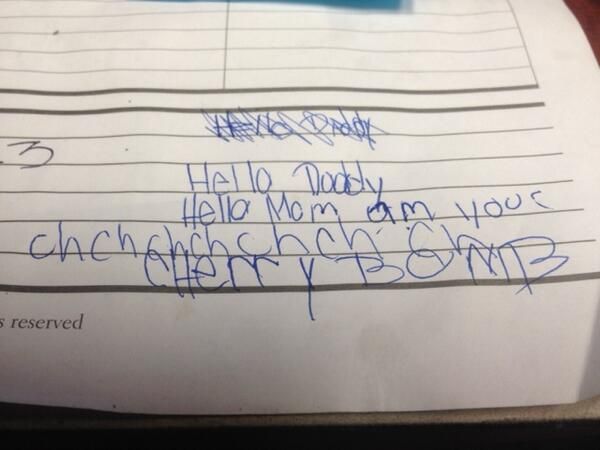 Hello Daddy
3
Hello Daddy
Hello Mom am your
chchchchchch ch
CHerry BOMB
s reserved